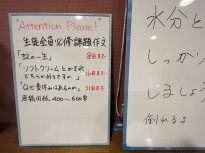 "Attention Please!"
生徒全員必修課題作文
"蚊の一生" 8日まで
"ソフトクリームとかき氷
どちらが好きですか" 
"なぜ夏休みはあるのか" 31日まで
原稿用紙、400〜600字
水分と
しっかり
じましょう
倒れるよ